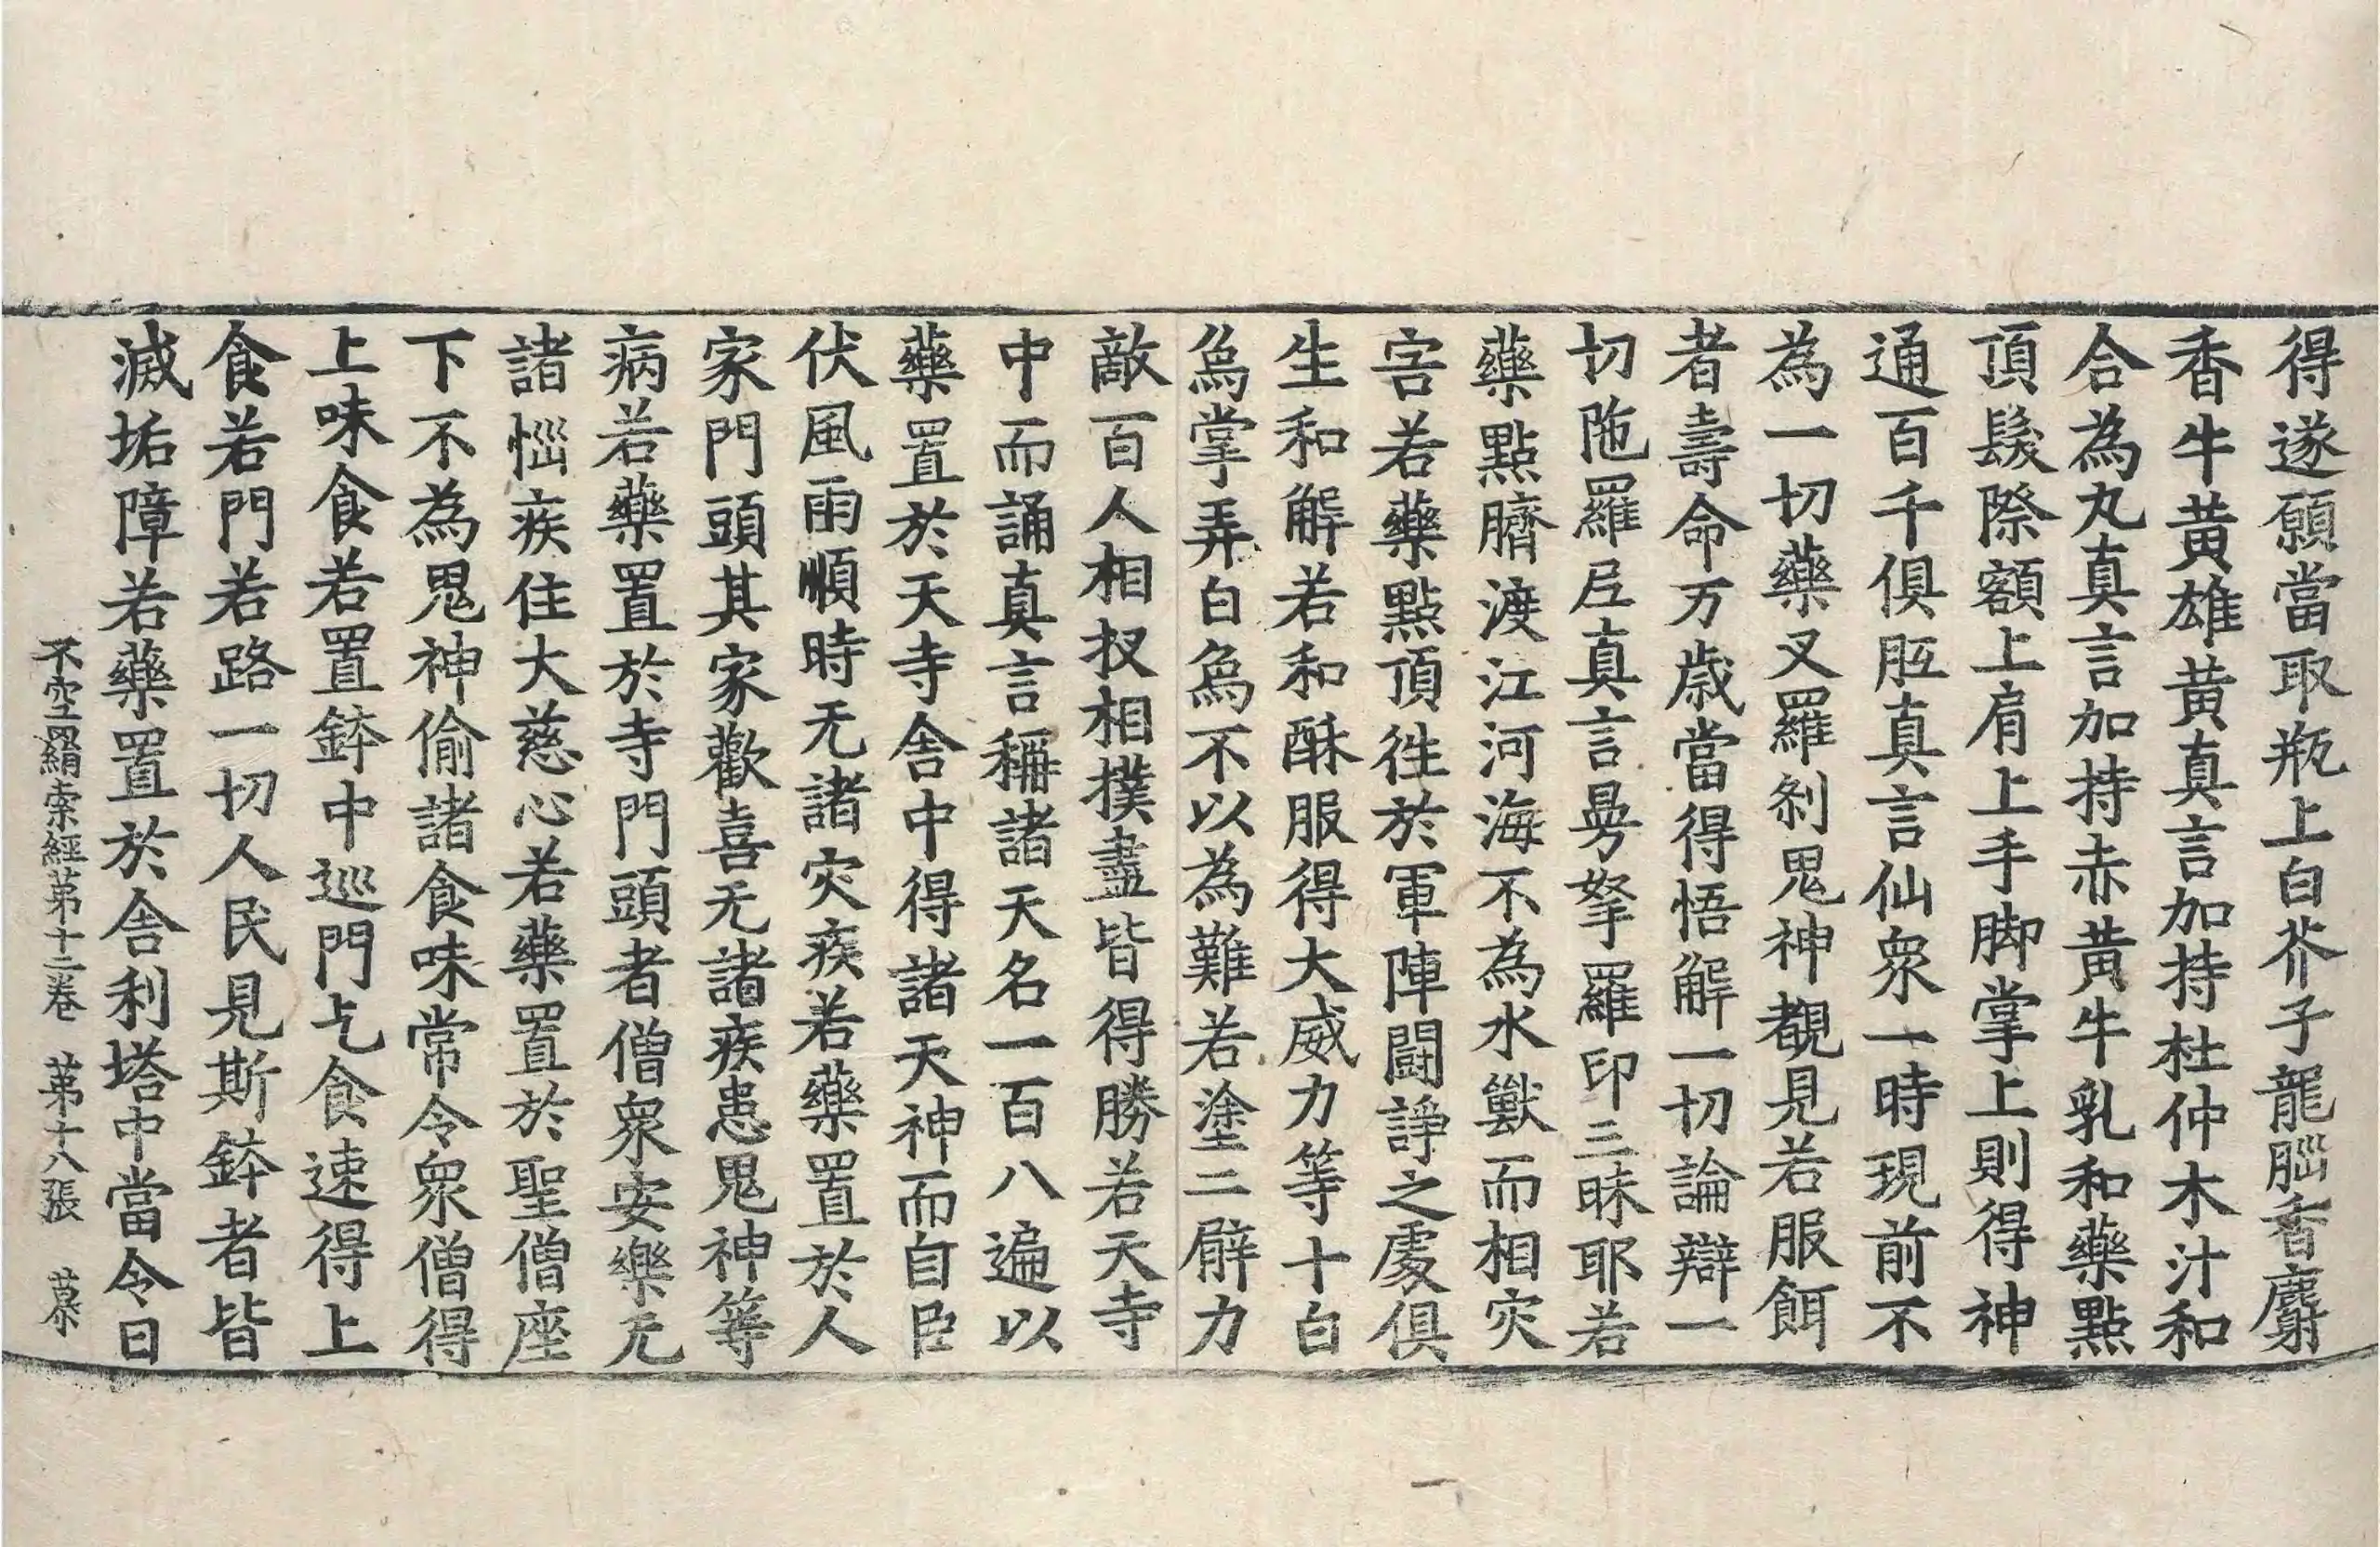 得遂願當取瓶上白芥子龍腦香麝
香牛黃雄黃真言加持杜仲木汁和
合為丸真言加持赤黃牛乳和藥點
頂髮際額上肩上手脚掌上則得神
通百千俱胝真言仙衆一時現前不
為一切藥叉羅剎鬼神覩見若服餌
者壽命万歲當得悟解一切論辯一
切陁羅尼真言曼拏羅印三昧耶若
藥點臍渡江河海不為水獸而相灾
害若藥點頂徃於軍陣鬪諍之處俱
生和解若和酥服得大威力等十白
象掌弄白象不以為難若塗二臂力
敵百人相扠相撲盡皆得勝若天寺
中而誦真言稱諸天名一百八遍以
藥置於天寺舍中得諸天神而自臣
伏風雨順時无諸灾疾若藥置於人
家門頭其家歡喜无諸疾患鬼神等
病若藥置於寺門頭者僧衆安樂无
諸惱疾住大慈心若藥置於聖僧座
下不為鬼神偷諸食味常令衆僧得
上味食若置鉢中巡門乞食速得上
食若門若路一切人民見斯鉢者皆
滅垢障若藥置於舍利塔中當令日
不空羂索經第十二卷 第十八張 慕